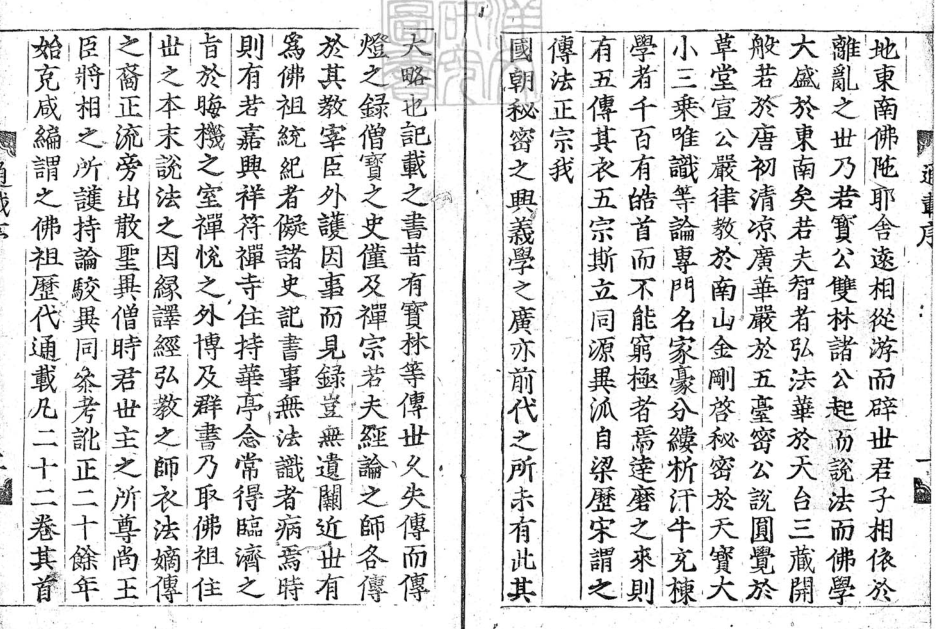 地東南佛陁耶舍遠相從游而辟世君子相依於
離亂之世乃若寶公雙林諸公起而說法而佛學
大盛於東南矣若夫智者弘法華於天台三藏開
般若於唐初清凉廣華嚴於五臺密公說圓覺於
草堂宣公嚴律教於南山金剛啓秘密於天寶大
小三乗唯識等論專門名家豪分縷析汗牛充棟
學者千百有皓首而不能窮極者焉達磨之來則
有五傳其衣五宗斯立同源異派自梁歷宋謂之
傳法正宗我
國朝秘密之興義學之廣亦前代之所未有此其
大略也記載之書昔有寶林等傳世久失傳而傳
燈之録僧寶之史僅及禪宗若夫經論之師各傳
於其教宰臣外護因事而見録豈無遺闕近世有
爲佛祖統紀者儗諸史記書事無法識者病焉時
則有若嘉興祥符禪寺住持華亭念常得臨濟之
旨於晦機之室禪悅之外博及群書乃取佛祖住
世之本末說法之因縁譯經弘教之師衣法嫡傳
之裔正流旁出散聖異僧時君世主之所尊尚王
臣將相之所護持論駮異同叅考訛正二十餘年
始克成編謂之佛祖歷代通載凡二十二卷其首
通載序